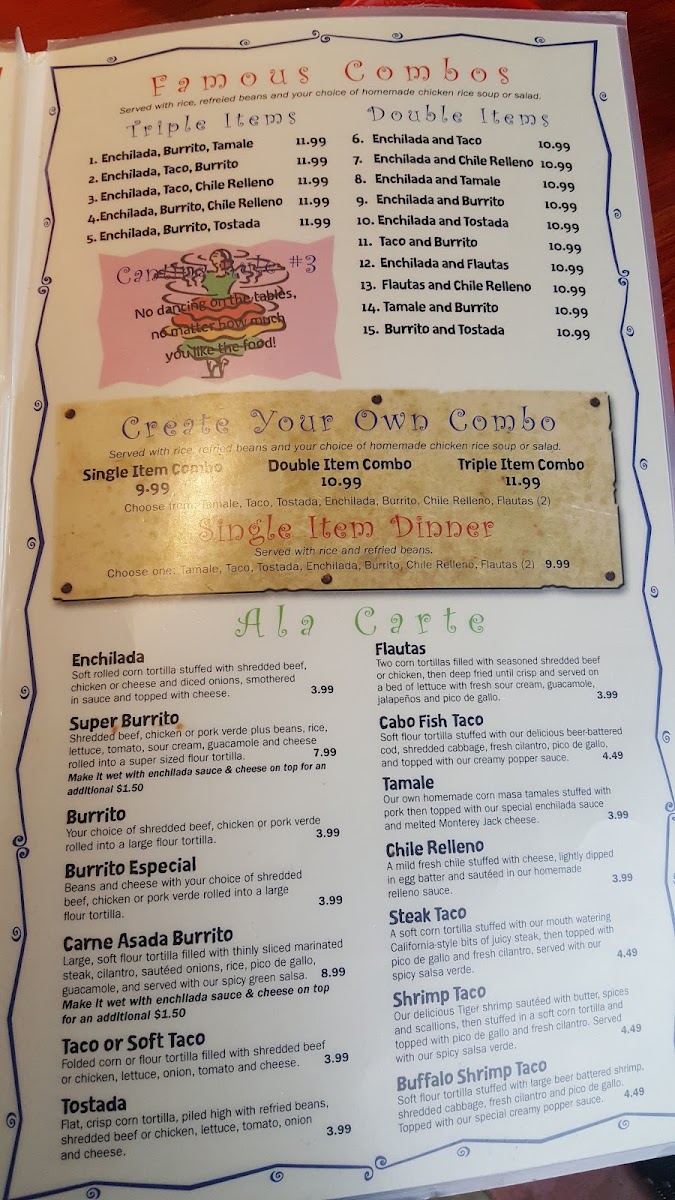 Famous Combos
Served with rice, refreied beans and your choice of homemade chicken rice soup or salad.
Triple Items
1. Enchilada, Burrito, Tamale 11.99
2. Enchilada, Taco, Burrito 11.99
3. Enchilada, Taco, Chile Relleno 11.99
4. Enchilada, Burrito, Chile Relleno 11.99
5. Enchilada, Burrito, Tostada 11.99
Double Items
6. Enchilada and Taco 10.99
7. Enchilada and Chile Relleno 10.99
8. Enchilada and Tamale 10.99
9. Enchilada and Burrito 10.99
10. Enchilada and Tostada 10.99
11. Taco and Burrito 10.99
12. Enchilada and Flautas 10.99
13. Flautas and Chile Relleno 10.99
14. Tamale and Burrito 10.99
15. Burrito and Tostada 10.99
#3
No dancing on the tables,
no matter how much
you like the food!
Create Your Own Combo
Served with rice, refried beans and your choice of homemade chicken rice soup or salad.
Single Item Combo
9.99
Double Item Combo
10.99
Triple Item Combo
11.99
Choose from: Tamale, Taco, Tostada, Enchilada, Burrito, Chile Relleno, Flautas (2)
Single Item Dinner
Served with rice and refried beans.
Choose one: Tamale, Taco, Tostada, Enchilada, Burrito, Chile Relleno, Flautas (2) 9.99
Ala Carte
Enchilada
Soft rolled corn tortilla stuffed with shredded beef,
chicken or cheese and diced onions, smothered
in sauce and topped with cheese. 3.99
Super Burrito
Shredded beef, chicken or pork verde plus beans, rice,
lettuce, tomato, sour cream, guacamole and cheese
rolled into a super sized flour tortilla. 7.99
Make it wet with enchilada sauce & cheese on top for an
additional $1.50
Burrito
Your choice of shredded beef, chicken or pork verde
rolled into a large flour tortilla. 3.99
Burrito Especial
Beans and cheese with your choice of shredded
beef, chicken or pork verde rolled into a large
flour tortilla. 3.99
Carne Asada Burrito
Large, soft flour tortilla filled with thinly sliced marinated
steak, cilantro, sautéed onions, rice, pico de gallo,
guacamole, and served with our spicy green salsa. 8.99
Make it wet with enchilada sauce & cheese on top
for an additional $1.50
Taco or Soft Taco
Folded corn or flour tortilla filled with shredded beef
or chicken, lettuce, onion, tomato and cheese. 3.99
Tostada
Flat, crisp corn tortilla, piled high with refried beans,
shredded beef or chicken, lettuce, tomato, onion
and cheese. 3.99
Flautas
Two corn tortillas filled with seasoned shredded beef
or chicken, then deep fried until crisp and served on
a bed of lettuce with fresh sour cream, guacamole,
jalapeños and pico de gallo. 3.99
Cabo Fish Taco
Soft flour tortilla stuffed with our delicious beer-battered
cod, shredded cabbage, fresh cilantro, pico de gallo,
and topped with our creamy popper sauce. 4.49
Tamale
Our own homemade corn masa tamales stuffed with
pork then topped with our special enchilada sauce
and melted Monterey Jack cheese. 3.99
Chile Relleno
A mild fresh chile stuffed with cheese, lightly dipped
in egg batter and sautéed in our homemade
relleno sauce. 3.99
Steak Taco
A soft corn tortilla stuffed with our mouth watering
California-style bits of juicy steak, then topped with
pico de gallo and fresh cilantro, served with our
spicy salsa verde. 4.49
Shrimp Taco
Our delicious Tiger shrimp sautéed with butter, spices
and scallions, then stuffed in a soft corn tortilla and
topped with pico de gallo and fresh cilantro. Served
with our spicy salsa verde. 4.49
Buffalo Shrimp Taco
Soft flour tortilla stuffed with large beer battered shrimp,
shredded cabbage, fresh cilantro and pico de gallo.
Topped with our special creamy popper sauce. 4.49